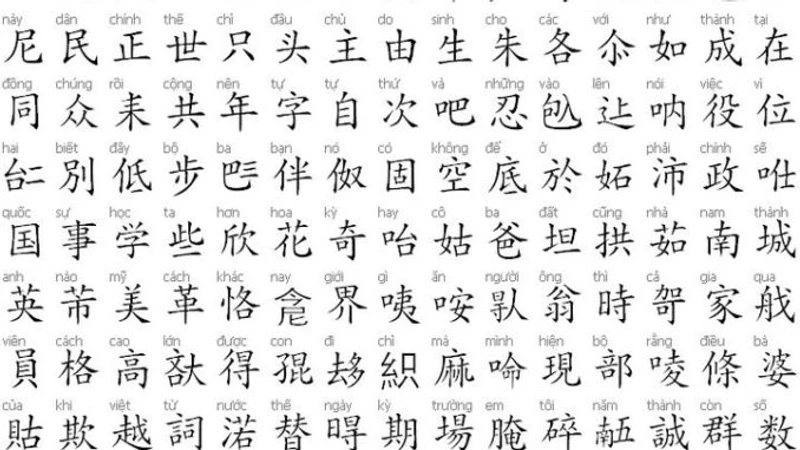 này dân chính thế chỉ đầu chủ do sinh cho các với như thành tại
尼 民 正 世 只 头 主 由 生 朱 各 㣺 如 成 在
đồng chúng rồi cộng nên tự tự thứ vả những vào lên nói việc vì
同 众 耒 共 年 字 自 次 吧 忍 𠓨 𨑗 呐 役 位
hai biết đây bộ ba bạn nó có không để ở đó phải chính sẽ
𠄩 別 低 步 𠀧 伴 伮 固 空 底 於 妬 沛 政 𠱊
quốc sự học ta hơn hoa kỳ hay cô ba đất cũng nhà nam thành
国 事 学 些 欣 花 奇 咍 姑 爸 坦 拱 茹 南 城
anh nào mỹ cách khác nay giới gì ăn người ông thì cả gia qua
英 芇 美 革 恪 界 咦 咹 𠊛 翁 時 哿 家 戈
viên cách cao lớn được con đi chỉ mà mình hiện bộ rằng điều bà
員 格 高 得 𡥵 𠫾 織 麻 命 現 部 唛 條 婆
của khi việt từ nước thế ngày kỳ trường em tôi năm thành còn số
貼 欺 越 詞 渃 替 𣈜 期 場 腌 碎 𠄼 誠 群 数